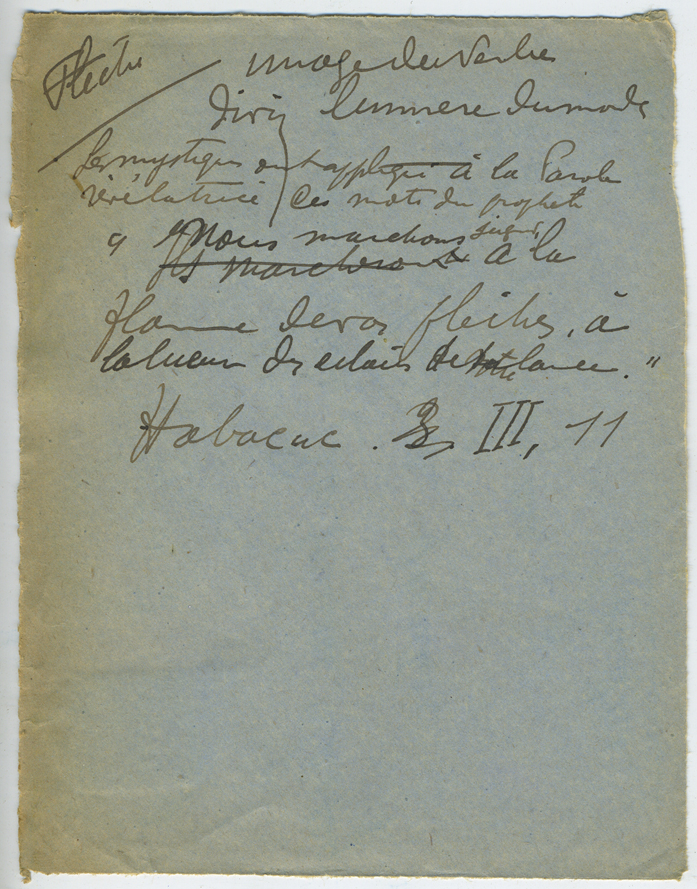 Flèche
image du Verbe
divin lumiere du monde
Les mystiques ont appliqué à la Parole
révélatrice ces mots du prophète
" Nous marchons Seigneur
Ils marcheront à la
flamme de vos flèches, à
la lueur des éclairs de votre lance."
Habacuc. III, 11